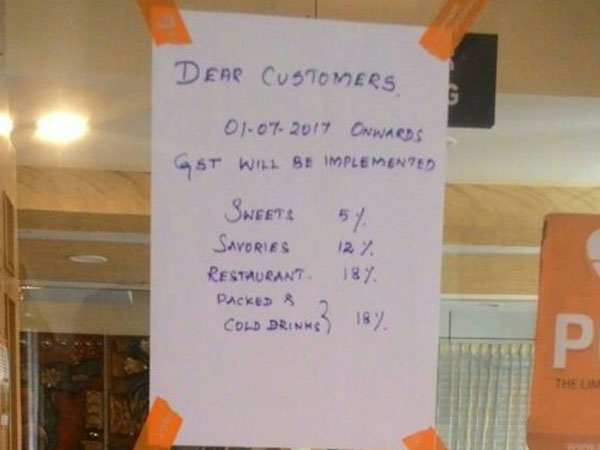 DEAR CUSTOMERS.
01-07-2017 ONWARDS
GST WILL BE IMPLEMENTED
SWEETS 5%
SAVORIES 12%
RESTAURANT. 18%.
PACKED &
COLD DRINKS } 18%.
G
P
THE LIM